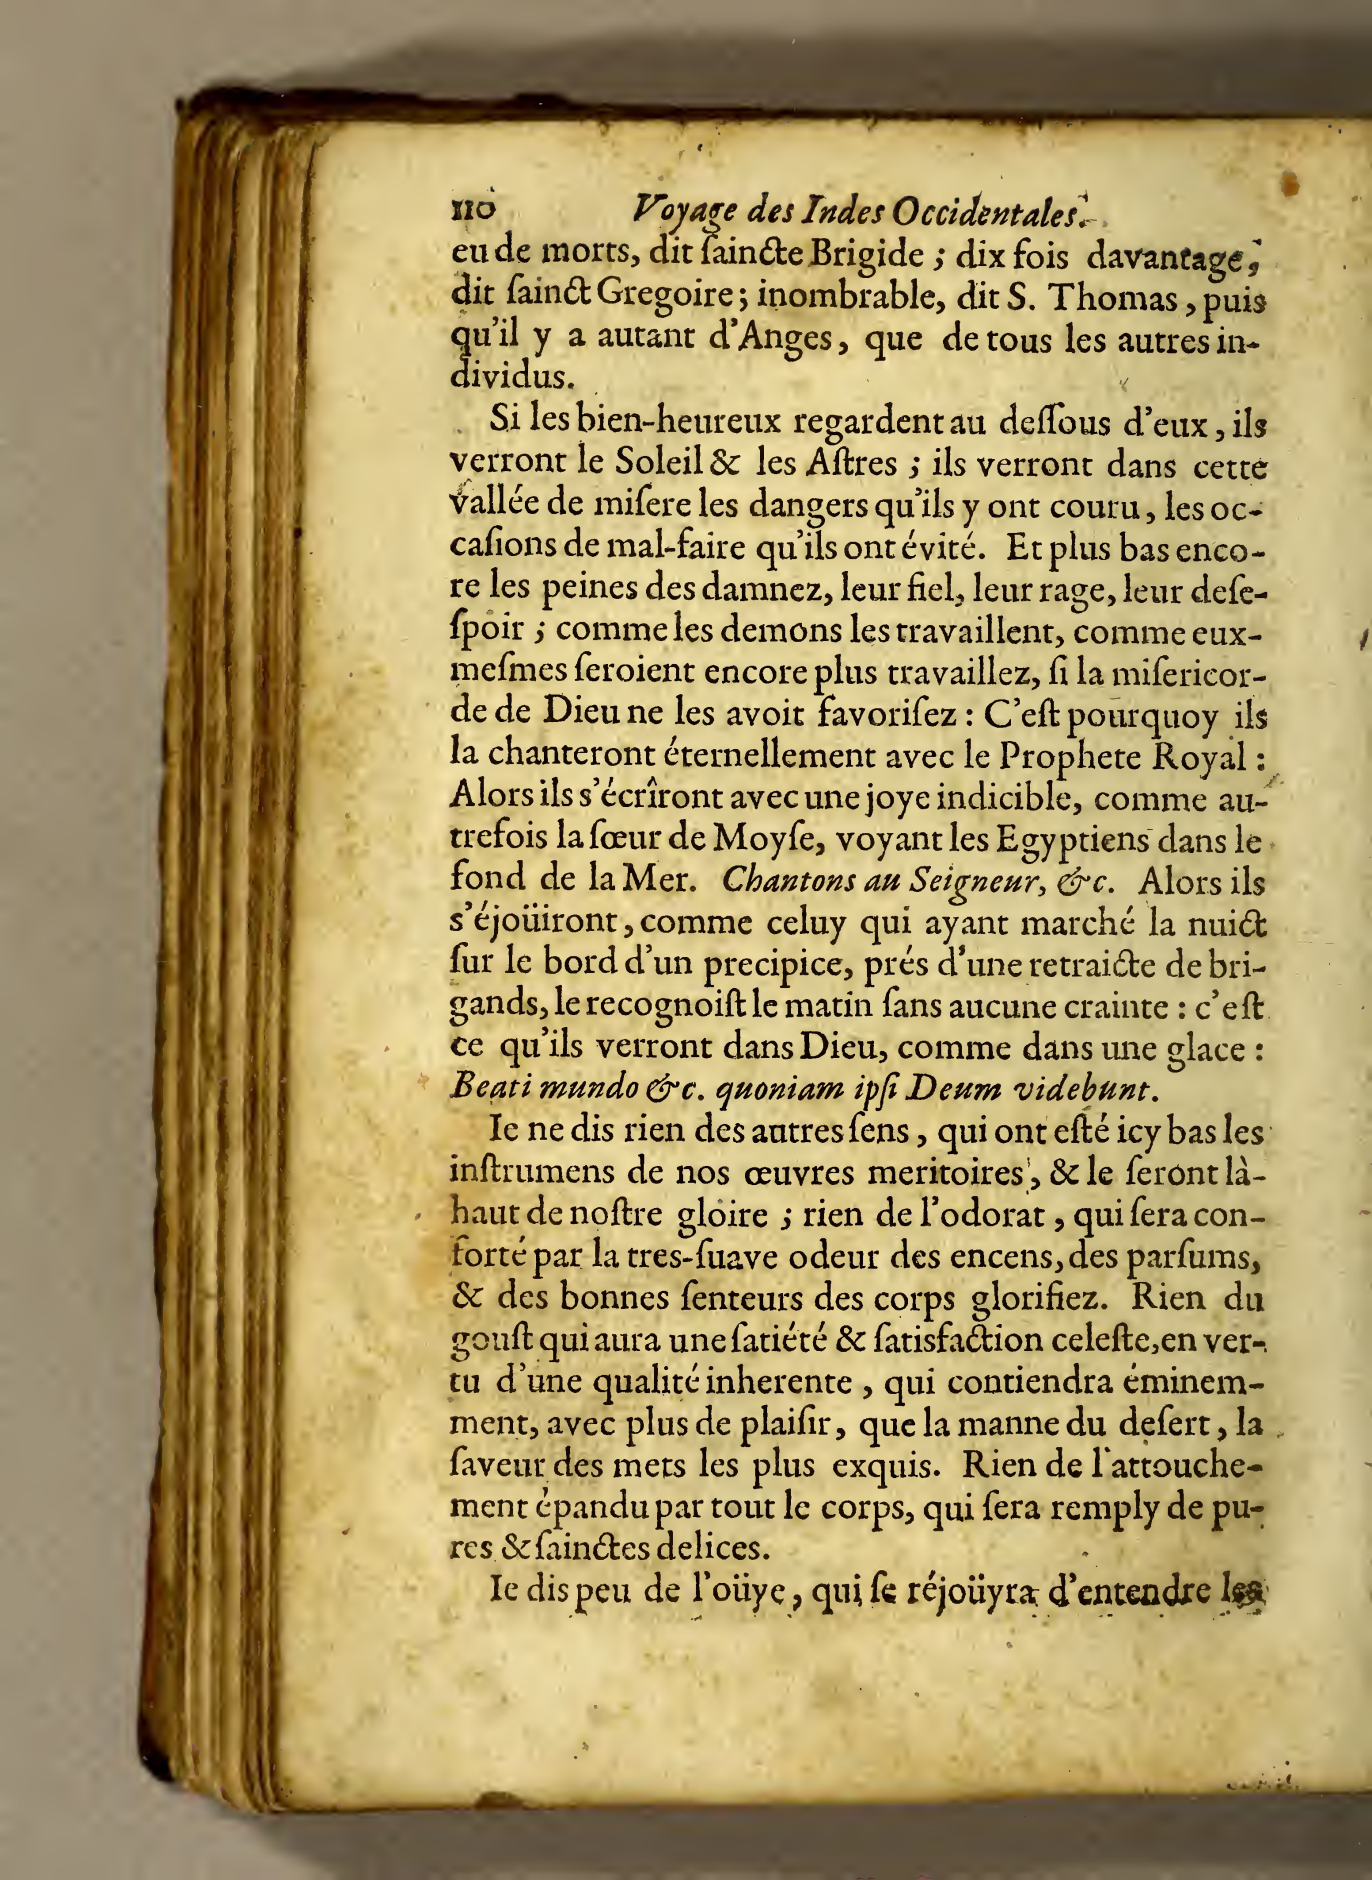 110 Voyage des Indes Occidentales.
eu de morts, dit ſaincte Brigide ; dix fois davantage,
dit ſainct Gregoire ; inombrable, dit S. Thomas, puis
qu'il y a autant d'Anges, que de tous les autres in-
dividus.
Si les bien-heureux regardent au deſſous d'eux, ils
verront le Soleil & les Aſtres ; ils verront dans cette
vallée de miſere les dangers qu'ils y ont couru, les oc-
caſions de mal-faire qu'ils ont évité. Et plus bas enco-
re les peines des damnez, leur fiel, leur rage, leur deſe-
ſpoir ; comme les demons les travaillent, comme eux-
meſmes ſeroient encore plus travaillez, ſi la miſericor-
de de Dieu ne les avoit favoriſez : C'eſt pourquoy ils
la chanteront éternellement avec le Prophete Royal :
Alors ils s'écrîront avec une joye indicible, comme au-
trefois la ſœur de Moyſe, voyant les Egyptiens dans le
fond de la Mer. Chantons au Seigneur, &c. Alors ils
s'éjoüiront, comme celuy qui ayant marché la nuict
ſur le bord d'un precipice, prés d'une retraicte de bri-
gands, le recognoiſt le matin ſans aucune crainte : c'eſt
ce qu'ils verront dans Dieu, comme dans une glace :
Beati mundo &c. quoniam ipſi Deum videbunt.
Ie ne dis rien des autres ſens, qui ont eſté icy bas les
inſtrumens de nos œuvres meritoires, & le ſeront là-
haut de noſtre gloire ; rien de l'odorat, qui ſera con-
forté par la tres-ſuave odeur des encens, des parfums,
& des bonnes ſenteurs des corps glorifiez. Rien du
gouſt qui aura une ſatiété & ſatisfaction celeſte, en ver-
tu d'une qualité inherente, qui contiendra éminem-
ment, avec plus de plaiſir, que la manne du deſert, la
ſaveur des mets les plus exquis. Rien de l'attouche-
ment épandu par tout le corps, qui ſera remply de pu-
res & ſainctes delices.
Ie dis peu de l'oüye, qui ſe réjoüyra d'entendre les